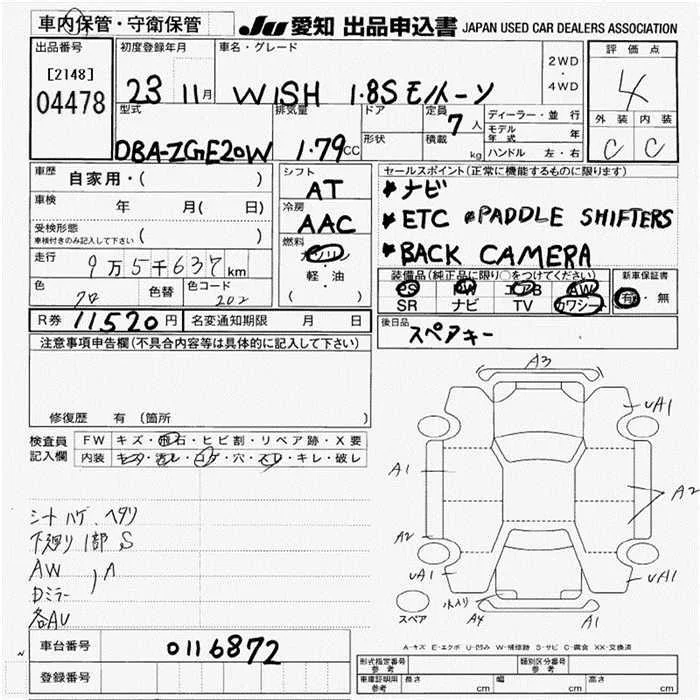 車内保管・守衛保管
JU 愛知 出品申込書 JAPAN USED CAR DEALERS ASSOCIATION
出品番号
[2148]
04478
初度登録年月
23 11月
車名・グレード
WISH 1.8S モノトーン
2WD
・
4WD
評価点
4
外装 内装
C C
型式
DBA-ZGE20W
排気量
1.79CC
ドア
形状
定員
7人
積載
kg
ディーラー・並行
モデル年式 年
ハンドル 左・右
車歴
自家用・( )
車検
年 月( 日)
受検形態
車検付きのみ記入して下さい ( )
走行
9万5千637km
色
クロ
色替
色コード
202
シフト
AT
冷房
AAC
燃料
ガソリン
軽・油
( )
セールスポイント(正常に機能するものに限ります)
*ナビ
*ETC *PADDLE SHIFTERS
*BACK CAMERA
装備品(純正品に限り○をつけてください)
PS PW エアB AW
SR ナビ TV カワシート
新車保証書
有・無
R券 11520円
名変通知期限 月 日
後日品
スペアキー
注意事項申告欄(不具合内容等は具体的に記入して下さい)
修復歴 有 (箇所 )
検査員
記入欄
FW キズ・飛石・ヒビ割・リペア跡・X要
内装 キズ・汚レ・コゲ・穴・スレ・キレ・破レ
シートハゲ、ヘタリ
下廻り1部S
AW
Dミラー
各AU
A3
UA1
A1
A2
A2
UA1
UA1
水入り
A4
A1
スペア
A-キズ E-エクボ U-凹み W-補修跡 S-サビ C-腐食 XX-交換済
車台番号
0116872
登録番号
形式指定番号
参考
類別区分番号
参考
車庫証明用
参考
長さ cm
幅 cm
高さ cm